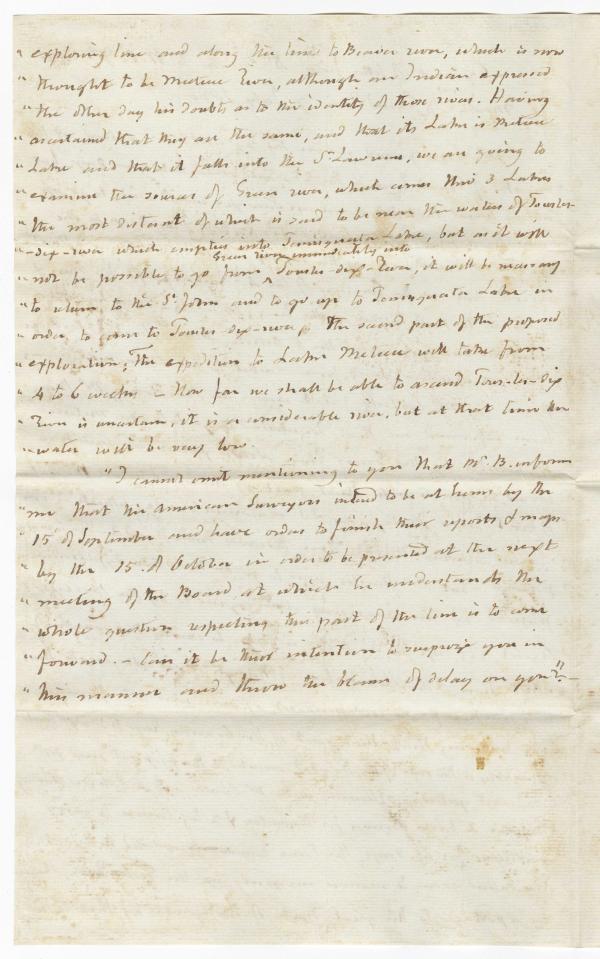 " exploring line and along the line to Beaver river, which is now
" thought to be Metiue River, although an Indian expressed
" the other day his doubts as to the identity of those rivers. Having
" ascertained that they are the same, and that its Lake is Metiue
" Lake and that it falls into the St Lawrence, we are going to
" examine the sources of Green river, which comes thro' 3 Lakes
" the most distant of which is said to be near the waters of Toules-
" -dix-river which empties into Temisquata Lake, but as it will
" not be possible to go from ^ Green River immediately into Toules-dix-River, it will be necessary
" to return to the St John and to go up to Temisquata Lake in
" order to come to Toules-dix-river, the second part of the proposed
" exploration; The expedition to Lake Metiue will take from
" 4 to 6 weeks – How far we shall be able to ascend Tous-les-dix
" River is uncertain, it is a considerable river, but at that time the
" water will be very low.
" I cannot omit mentioning to you that Mr B. informs
" me that the American Surveyors intend to be at home by the
" 15 of September and have orders to finish their reports & maps
" by the 15. of October in order to be presented at the next
" meeting of the Board at which he understands the
" whole question respecting this part of the line is to come
" forward. – Can it be their intention to surprize you in
" this manner and throw the blame of delay on you?" –